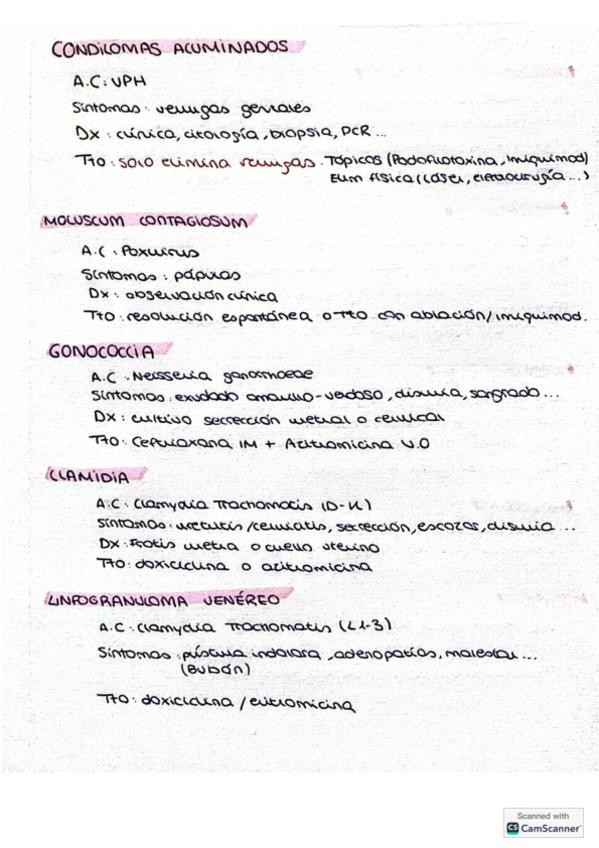 CONDILOMAS ACUMINADOS
A.C: VPH
Síntomas: verrugas genitales
Dx: clínica, citología, biopsia, PCR...
Tto: solo elimina verrugas. Tópicos (Podofilotoxina, Imiquimod)
Elim física (láser, electrocirugía...)
MOLUSCUM CONTAGIOSUM
A.C: Poxvirus
Síntomas: pápulas
Dx: observación clínica
Tto: resolución espontánea o tto con ablación/imiquimod.
GONOCOCCIA
A.C. Neisseria gonorrhoeae
Síntomas: exudado amarillo-verdoso, disuria, sangrado...
Dx: cultivo secreción uretral o cervical
Tto: Ceftriaxona IM + Azitromicina V.O
CLAMIDIA
A.C. Clamydia Trachomatis (D-K)
Síntomas: uretritis/cervicitis, secreción, escozor, disuria...
Dx: Frotis uretra o cuello uterino
Tto: doxiciclina o azitromicina
LINFOGRANULOMA VENÉREO
A.C. Clamydia Trachomatis (L1-3)
Síntomas: pústula indolora, adenopatías, malestar...
(Bubón)
Tto: doxiciclina / eritromicina
Scanned with
CS CamScanner